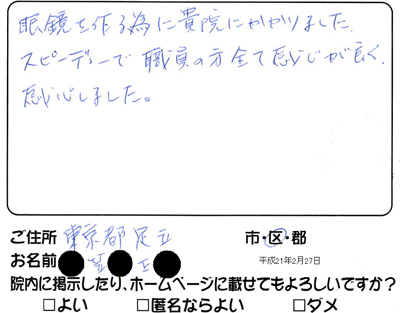 眼鏡を作る為に貴院にかかりました。
スピーディーで職員の方全て感じが良く、
感心しました。
ご住所 東京都足立 市・区・郡
お名前
平成21年2月27日
院内に掲示したり、ホームページに載せてもよろしいですか?
□よい □匿名ならよい □ダメ